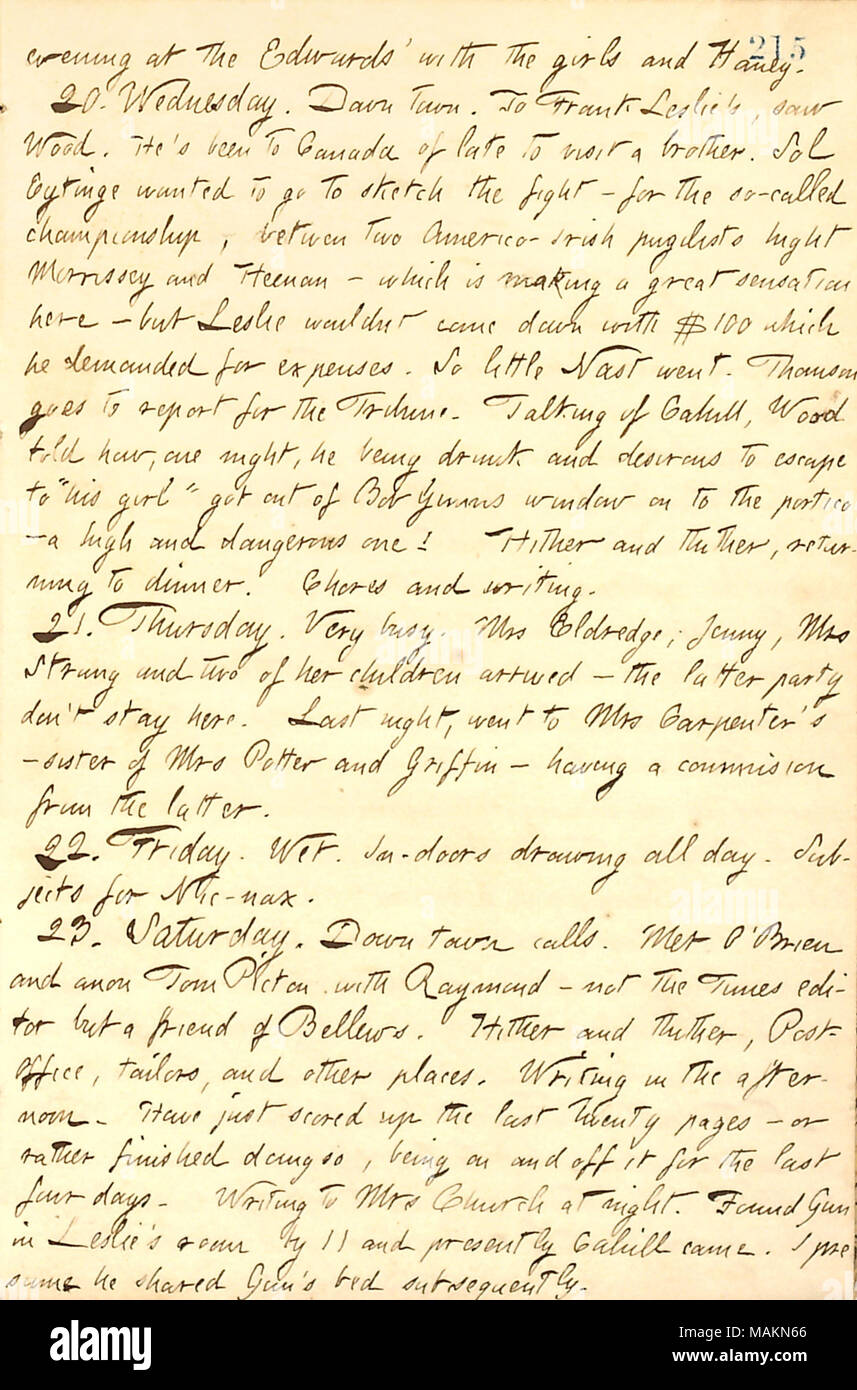 215
evening at the Edwards' with the girls and Haney.
20. Wednesday. Down town. To Frank Leslie's, saw
Wood. He's been to Canada of late to visit a brother. Sol
Eytinge wanted to go to sketch the fight – for the so-called
championship, between two Americo-Irish pugilists hight
Morrissey and Heenan – which is making a great sensation
here – but Leslie wouldn't come down with $100 which
he demanded for expenses. So little Nast went. Thomson
goes to report for the Tribune. Talking of Cahill, Wood
told how, one night, he being drunk and desirous to escape
to "his girl" got out of Bob Gunns window on to the portico
– a high and dangerous one! Hither and thither, retur-
ning to dinner. Chores and writing.
21. Thursday. Very busy. Mrs Eldredge, Jenny, Mrs
Strong and two of her children arrived – the latter party
don't stay here. Last night, went to Mrs Carpenter's
– sister of Mrs Potter and Griffin – having a commision
from the latter.
22. Friday. Wet. In-doors drawing all day. Sub-
jects for Nic-nax.
23. Saturday. Down town calls. Met O'Brien
and anon Tom Picton with Raymond – not the Times edi-
tor but a friend of Bellews. Hither and thither, Post-
Office, tailors, and other places. Writing in the after-
noon. Have just scored up the last twenty pages – or
rather finished doing so, being on and off it for the last
four days. Writing to Mrs Church at night. Found Gun
in Leslie's room by 11 and presently Cahill came. I pre
sume he shared Gun's bed subsequently.
alamy
Image ID: MAKN66
www.alamy.com